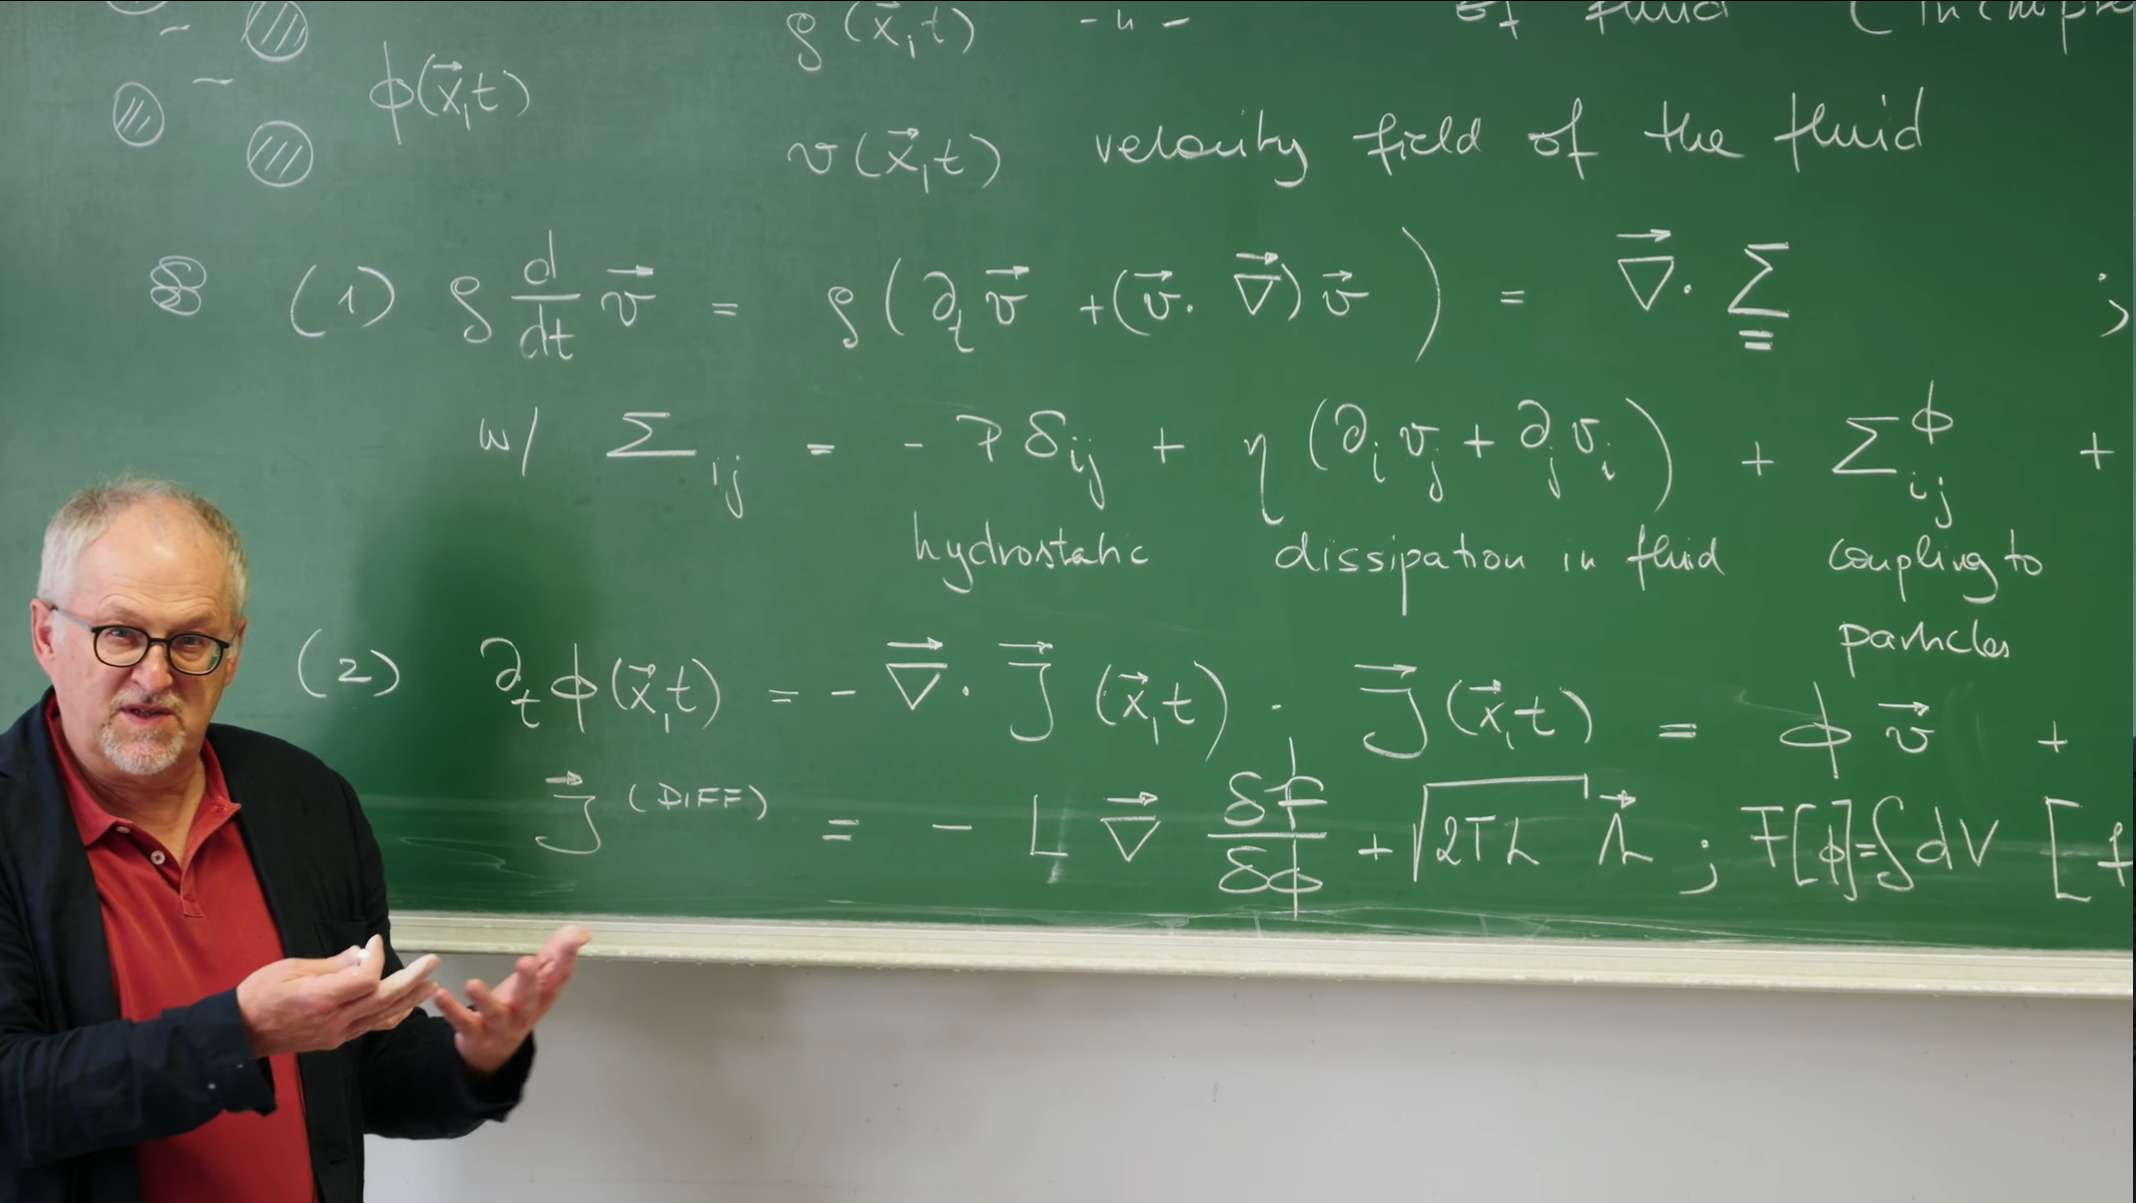 ρ(x⃗,t) -"- of fluid (incompre
ϕ(x⃗,t)
v(x⃗,t) velocity field of the fluid
(1) ρ d/dt v⃗ = ρ(∂ₜv⃗ + (v⃗·∇⃗)v⃗) = ∇⃗·Σ ;
w/ Σ_ij = - P δ_ij + η(∂_i v_j + ∂_j v_i) + Σ^ϕ_ij +
hydrostatic dissipation in fluid coupling to
particles
(2) ∂ₜϕ(x⃗,t) = - ∇⃗·J⃗(x⃗,t) . J⃗(x⃗,t) = ϕ v⃗ +
J⃗^(DIFF) = - L ∇⃗ δF/δϕ + √2TL Λ⃗ ; F[ϕ]=∫dV [f